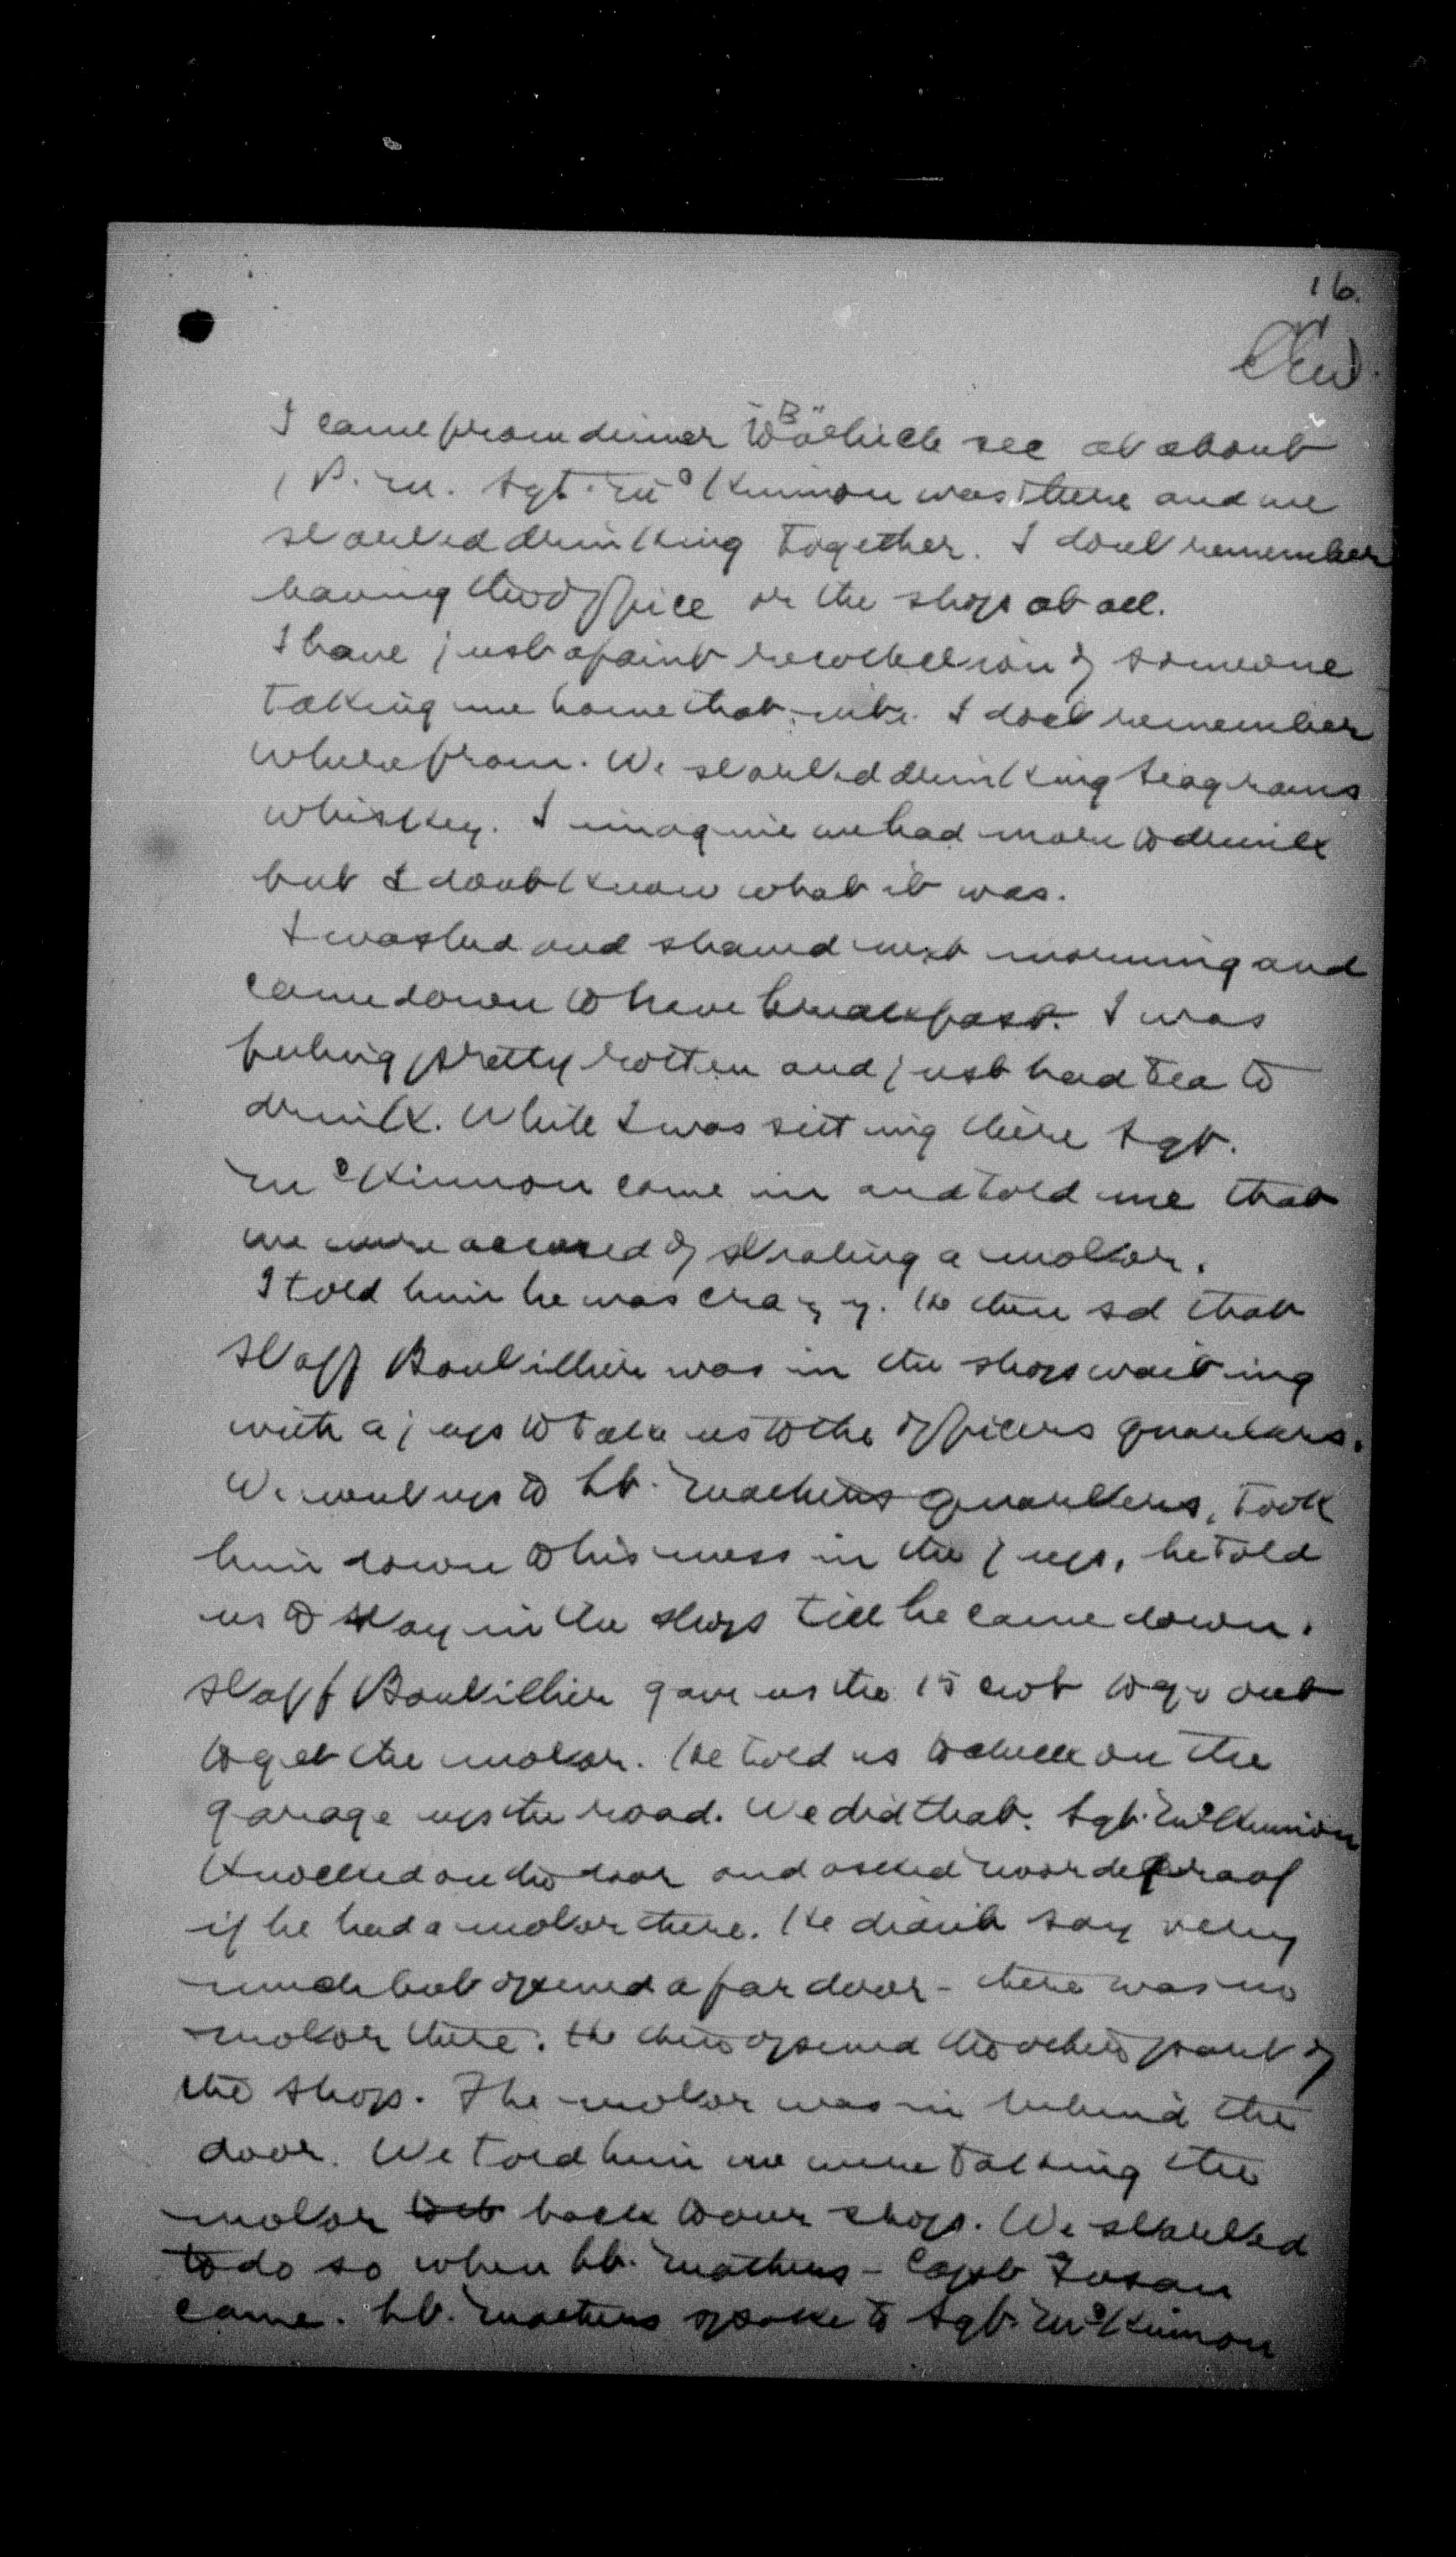 16.
I came from dinner to "B" vehicle sec at about
1 P.M. Sgt. McKinnon was there and we
started drinking together. I dont remember
leaving the office or the shop at all.
I have just a faint recollection of someone
taking me home that nite. I dont remember
where from. We started drinking Seagrams
whiskey. I imagine we had more to drink
but I dont know what it was.
I washed and shaved next morning and
came down to have breakfast. I was
feeling pretty rotten and just had tea to
drink. While I was sitting there Sgt.
McKinnon came in and told me that
we were accused of stealing a motor.
I told him he was crazy. He then sd that
Staff Boutillier was in the shop waiting
with a jeep to take us to the officers quarters.
We went up to Lt. Mathews quarters, took
him down to his mess in the jeep, he told
us to stay in the shop till he came down.
Staff Boutillier gave us the 15 cwt to go out
to get the motor. He told us to check on the
garage up the road. We did that. Sgt. McKinnon
knocked on the door and asked Noordegraaf
if he had a motor there. He didnt say very
much but opened a far door - there was no
motor there. He then opened the other part of
the shop. The motor was in behind the
door. We told him we were taking the
motor back to our shop. We started
to do so when Lt. Mathews - Capt
came. Lt. Mathews spoke to Sgt. McKinnon